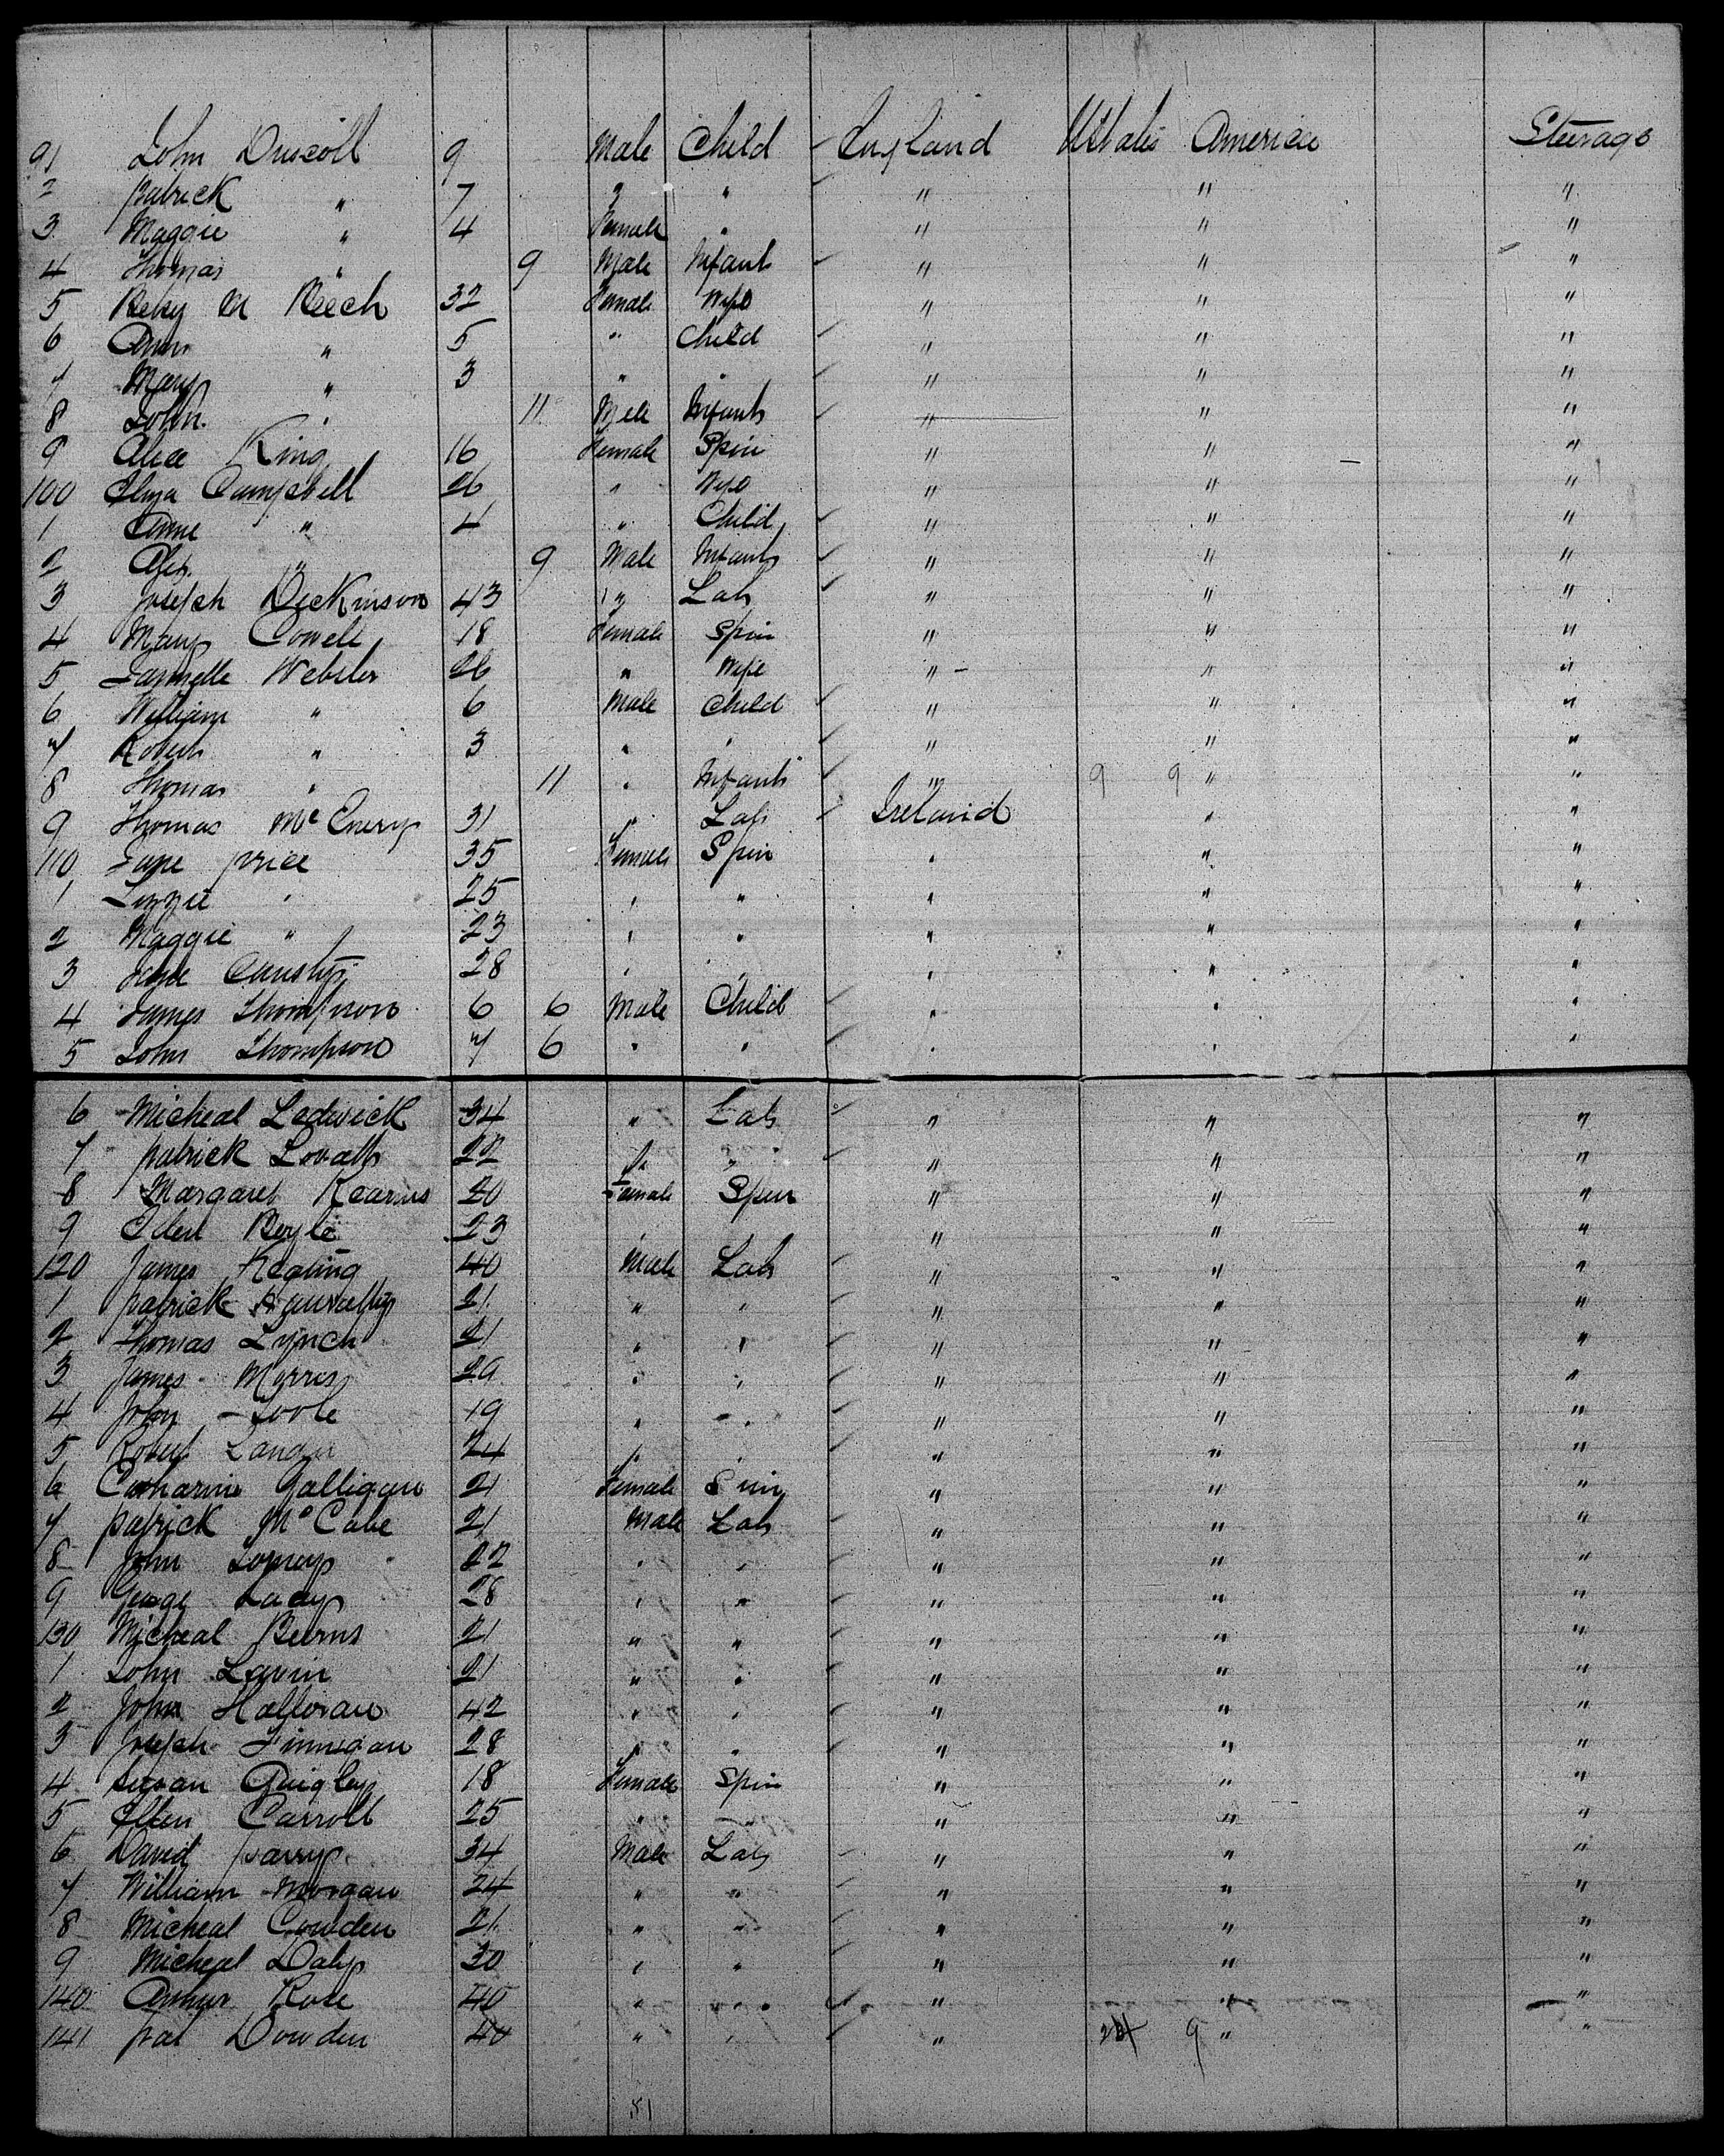 91 John Driscoll 9 Male Child England U States America Steerage
2 Patrick " 7 " " " " "
3 Maggie " 4 Female " " " "
4 Thomas " 9 Male Infant " " "
5 Betsy M Beech 32 Female Wife " " "
6 Ann " 5 " Child " " "
7 Mary " 3 " " " " "
8 John " 11 Male Infant " " "
9 Alice King 16 Female Spin " " "
100 Eliza Campbell 26 " Wife " " "
1 Anne " 4 " Child " " "
2 Alex. " 9 Male Infant " " "
3 Joseph Dickinson 43 " Lab " " "
4 Mary Cowell 18 Female Spin " " "
5 Webster 26 " Wife " " "
6 William " 6 Male Child " " "
7 Robert " 3 " " " " "
8 Thomas " 11 " Infant " 9 9 " "
9 Thomas McEnery 31 " Lab Ireland " "
110 Jane Price 35 Female Spin " " "
1 Lizzie " 25 " " " " "
2 Maggie " 23 " " " " "
3 Jane 28 " " " " "
4 James Thompson 6 6 Male Child " " "
5 John Thompson 7 6 " " " " "
6 Micheal Ledwick 34 " Lab " " "
7 Patrick 22 " " " " "
8 Margaret Kearns 20 Female Spin " " "
9 Boyle 23 " " "
120 James Keating 40 Male Lab " " "
1 Patrick 21 " " " " "
2 Thomas Lynch 21 " " " " "
3 James Morris 29 " " " " "
4 John Toole 19 " " " " "
5 Robert 24 " " " " "
6 Catharine Galligan 21 Female Spin " " "
7 Patrick McCabe 21 Male Lab " " "
8 John 22 " " " " "
9 George Lacey 28 " " " " "
130 Micheal Beirns 21 " " " " "
1 John Lavin 21 " " " " "
2 John Halloran 42 " " " " "
3 Joseph Finnegan 28 " " " " "
4 Susan Quigley 18 Female Spin " " "
5 Ellen Carroll 25 " " " " "
6 David Parry 34 Male Lab " " "
7 William Morgan 24 " " " " "
8 Micheal Cowden 21 " " " " "
9 Micheal Daly 30 " " " " "
140 Arthur Rose 40 " " " " "
141 Pat Dowden 40 " " " 24 9 " "
81